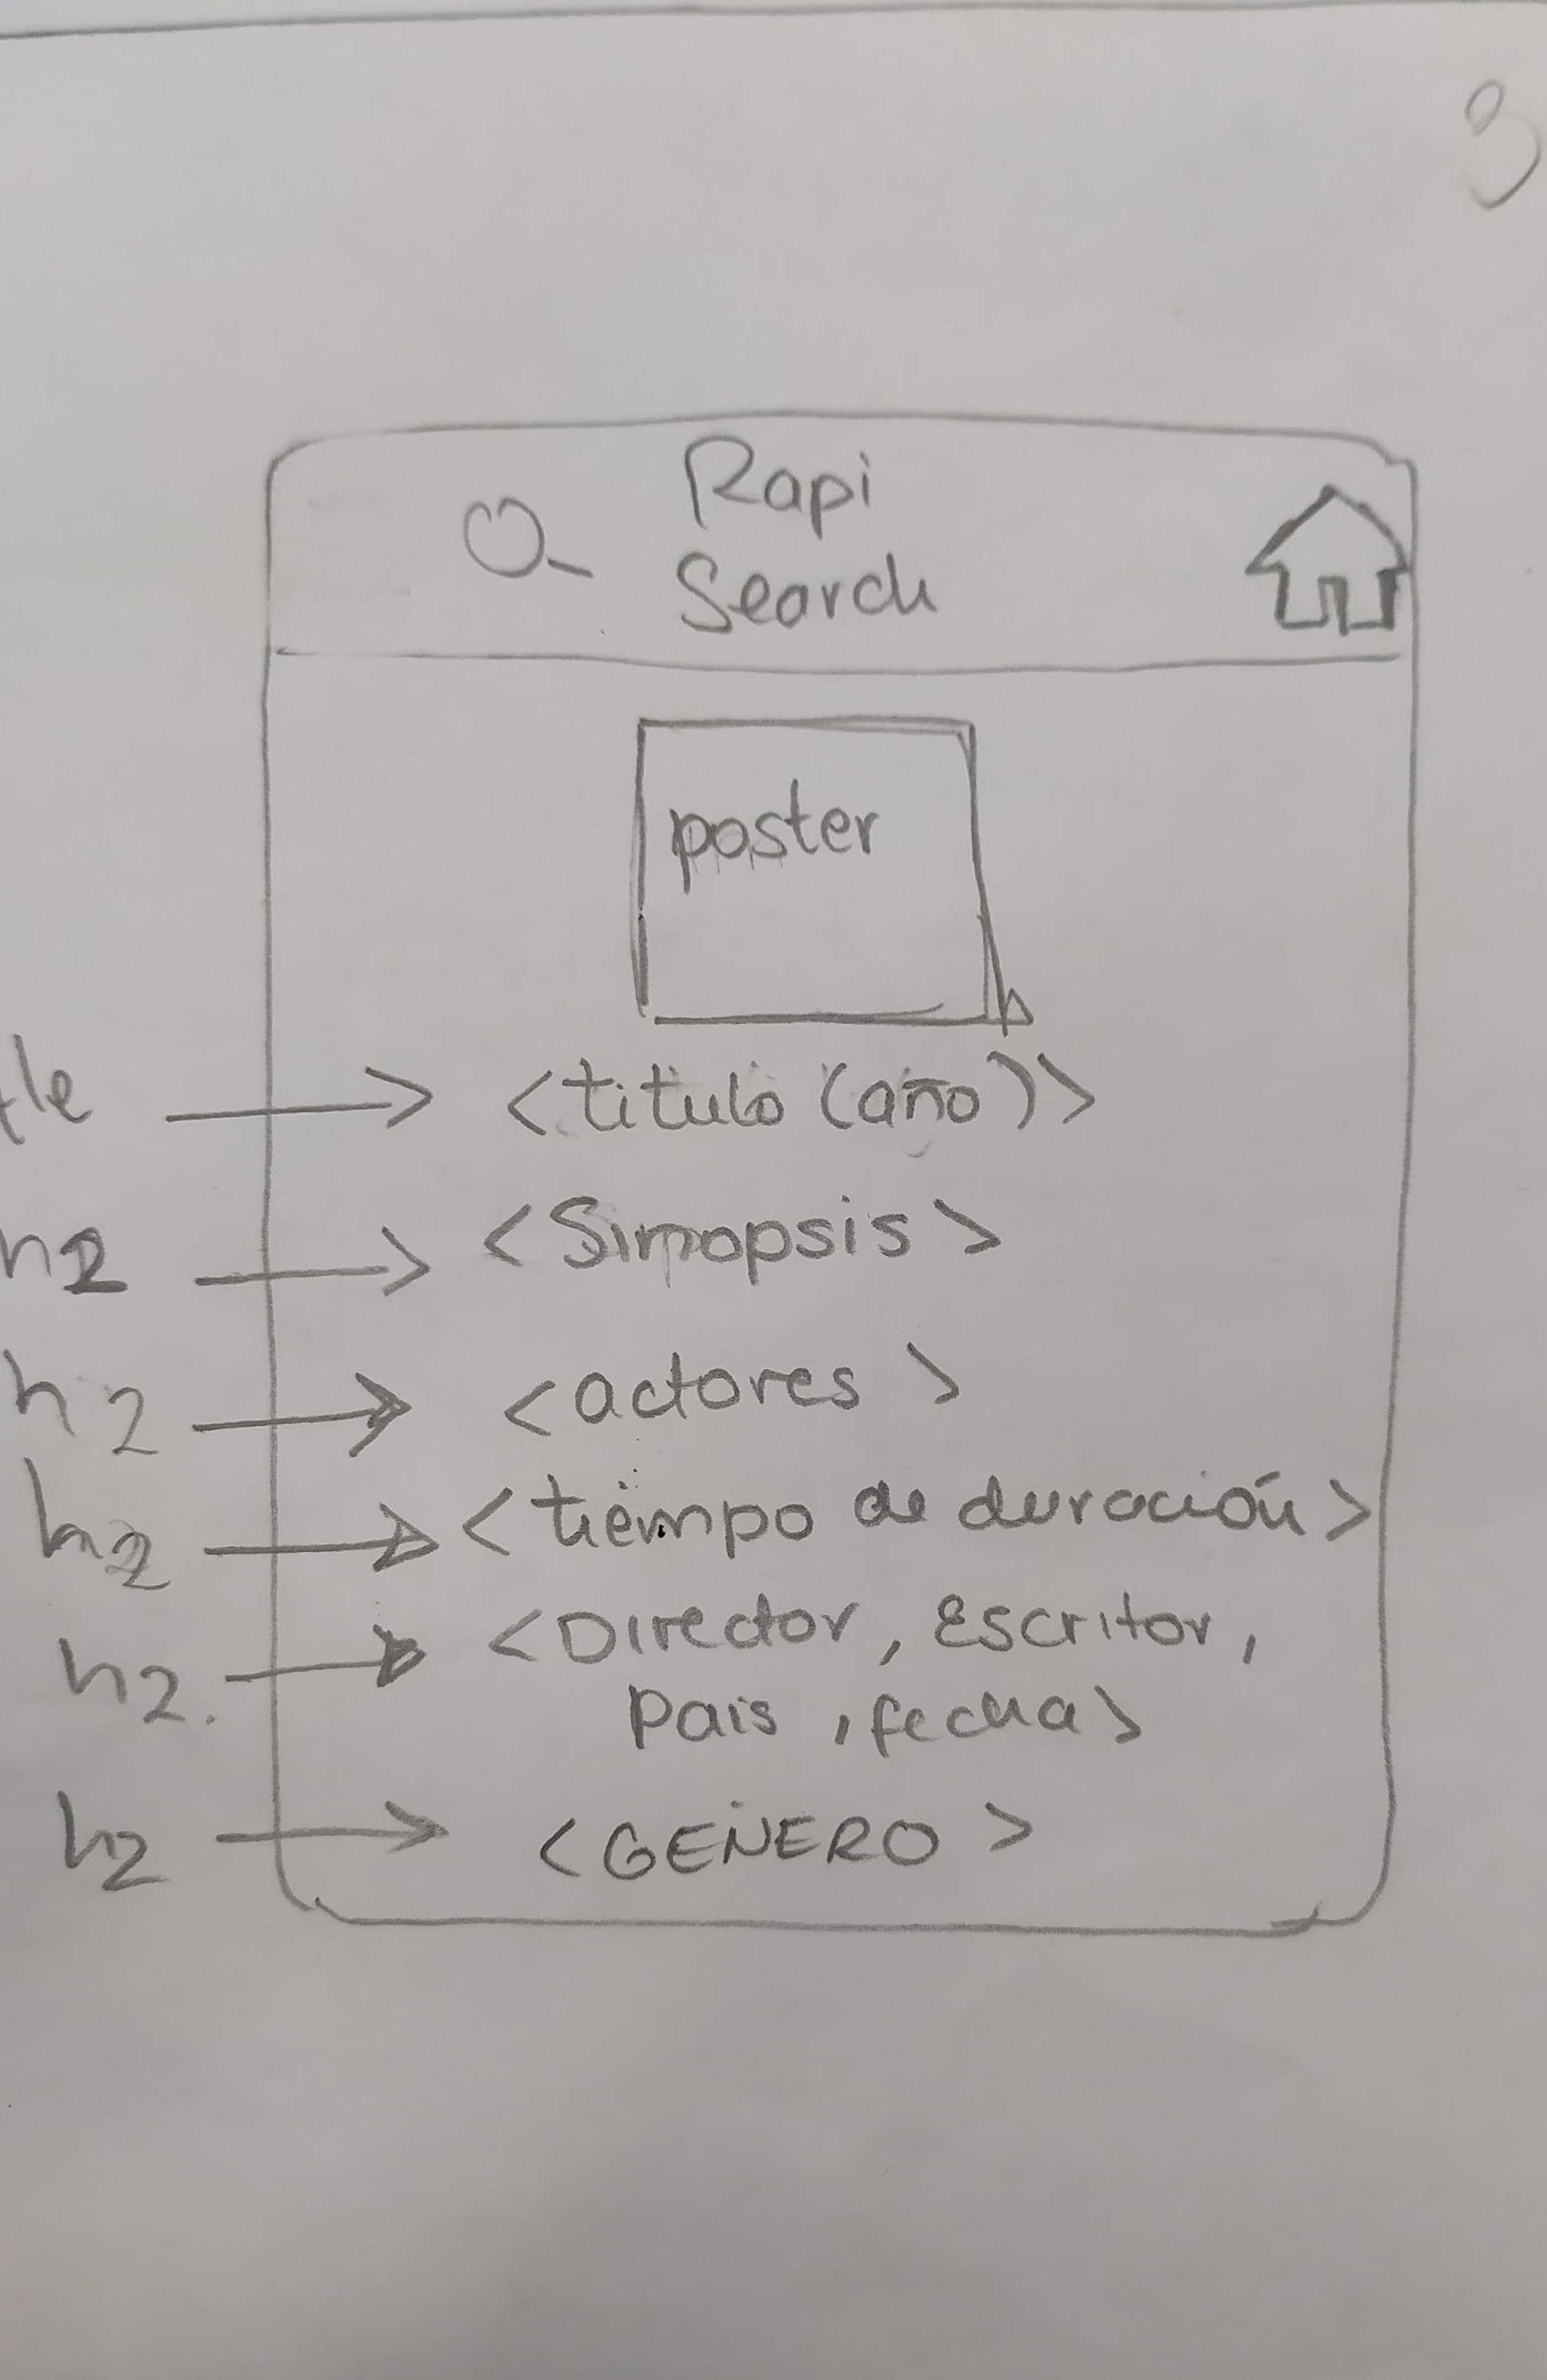 3
Rapi
Search
poster
tle <titulo (año)>
h2 <Sinopsis>
h2 <actores>
h2 <tiempo de duración>
h2. <Director, Escritor,
Pais, fecha>
h2 <GENERO>